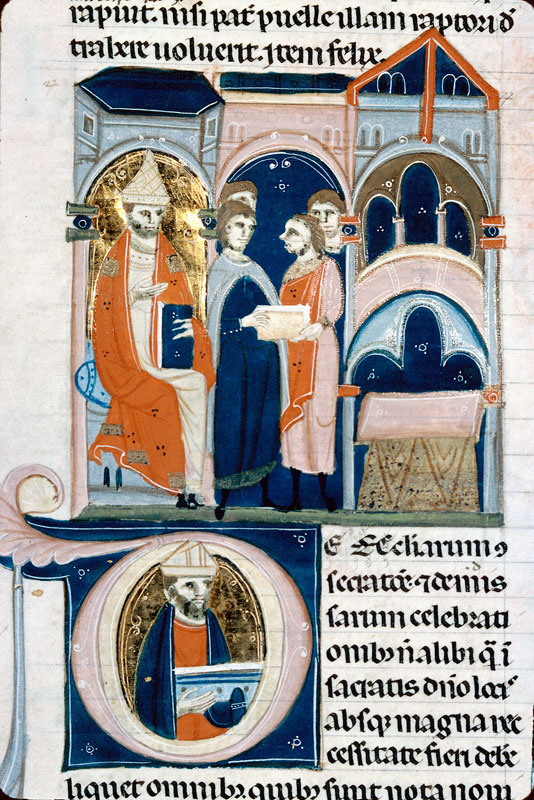 rapiut. nisi pat͛ puelle illam raptori đ
trahere uoluerit. Item felix.
E Eccliarum ɔ
secratōe. ⁊ de mis
sarum celebrati
onibꝫ ñ alibi q̃ ĩ
sacratis dño locꝭ
absqꝫ magna nec
cessitate fieri debe
liquet omnibꝫ. quibꝫ sunt nota noui